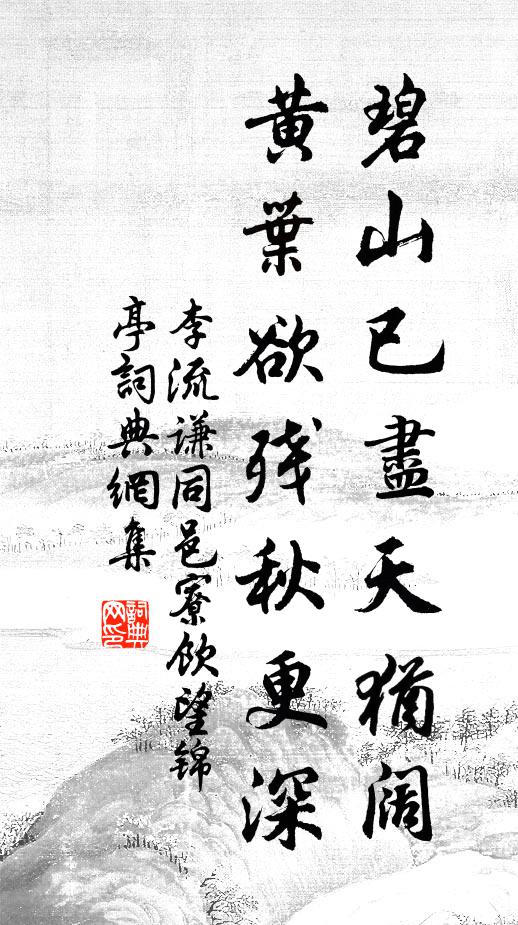 碧山已盡天猶闊
黃葉欲残秋更深
李流谦同邑寮饮望锦
亭詞典網集
詞典网印